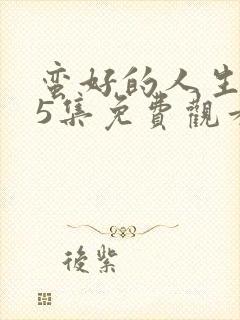 蛮好的人生
5集免費觀看
後紫